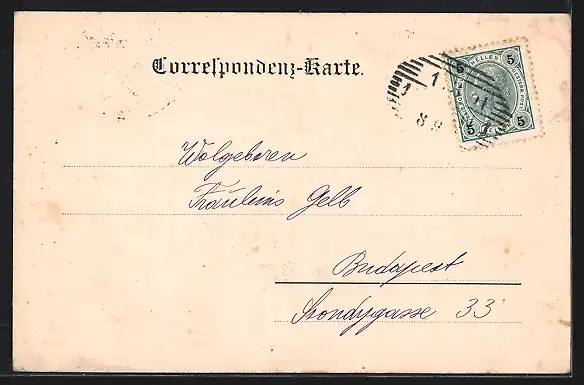 Correspondenz-Karte.
5 HELLER 5
5 5
Wolgeboren
Fräulein's Gelb
Budapest
Szondygasse 33